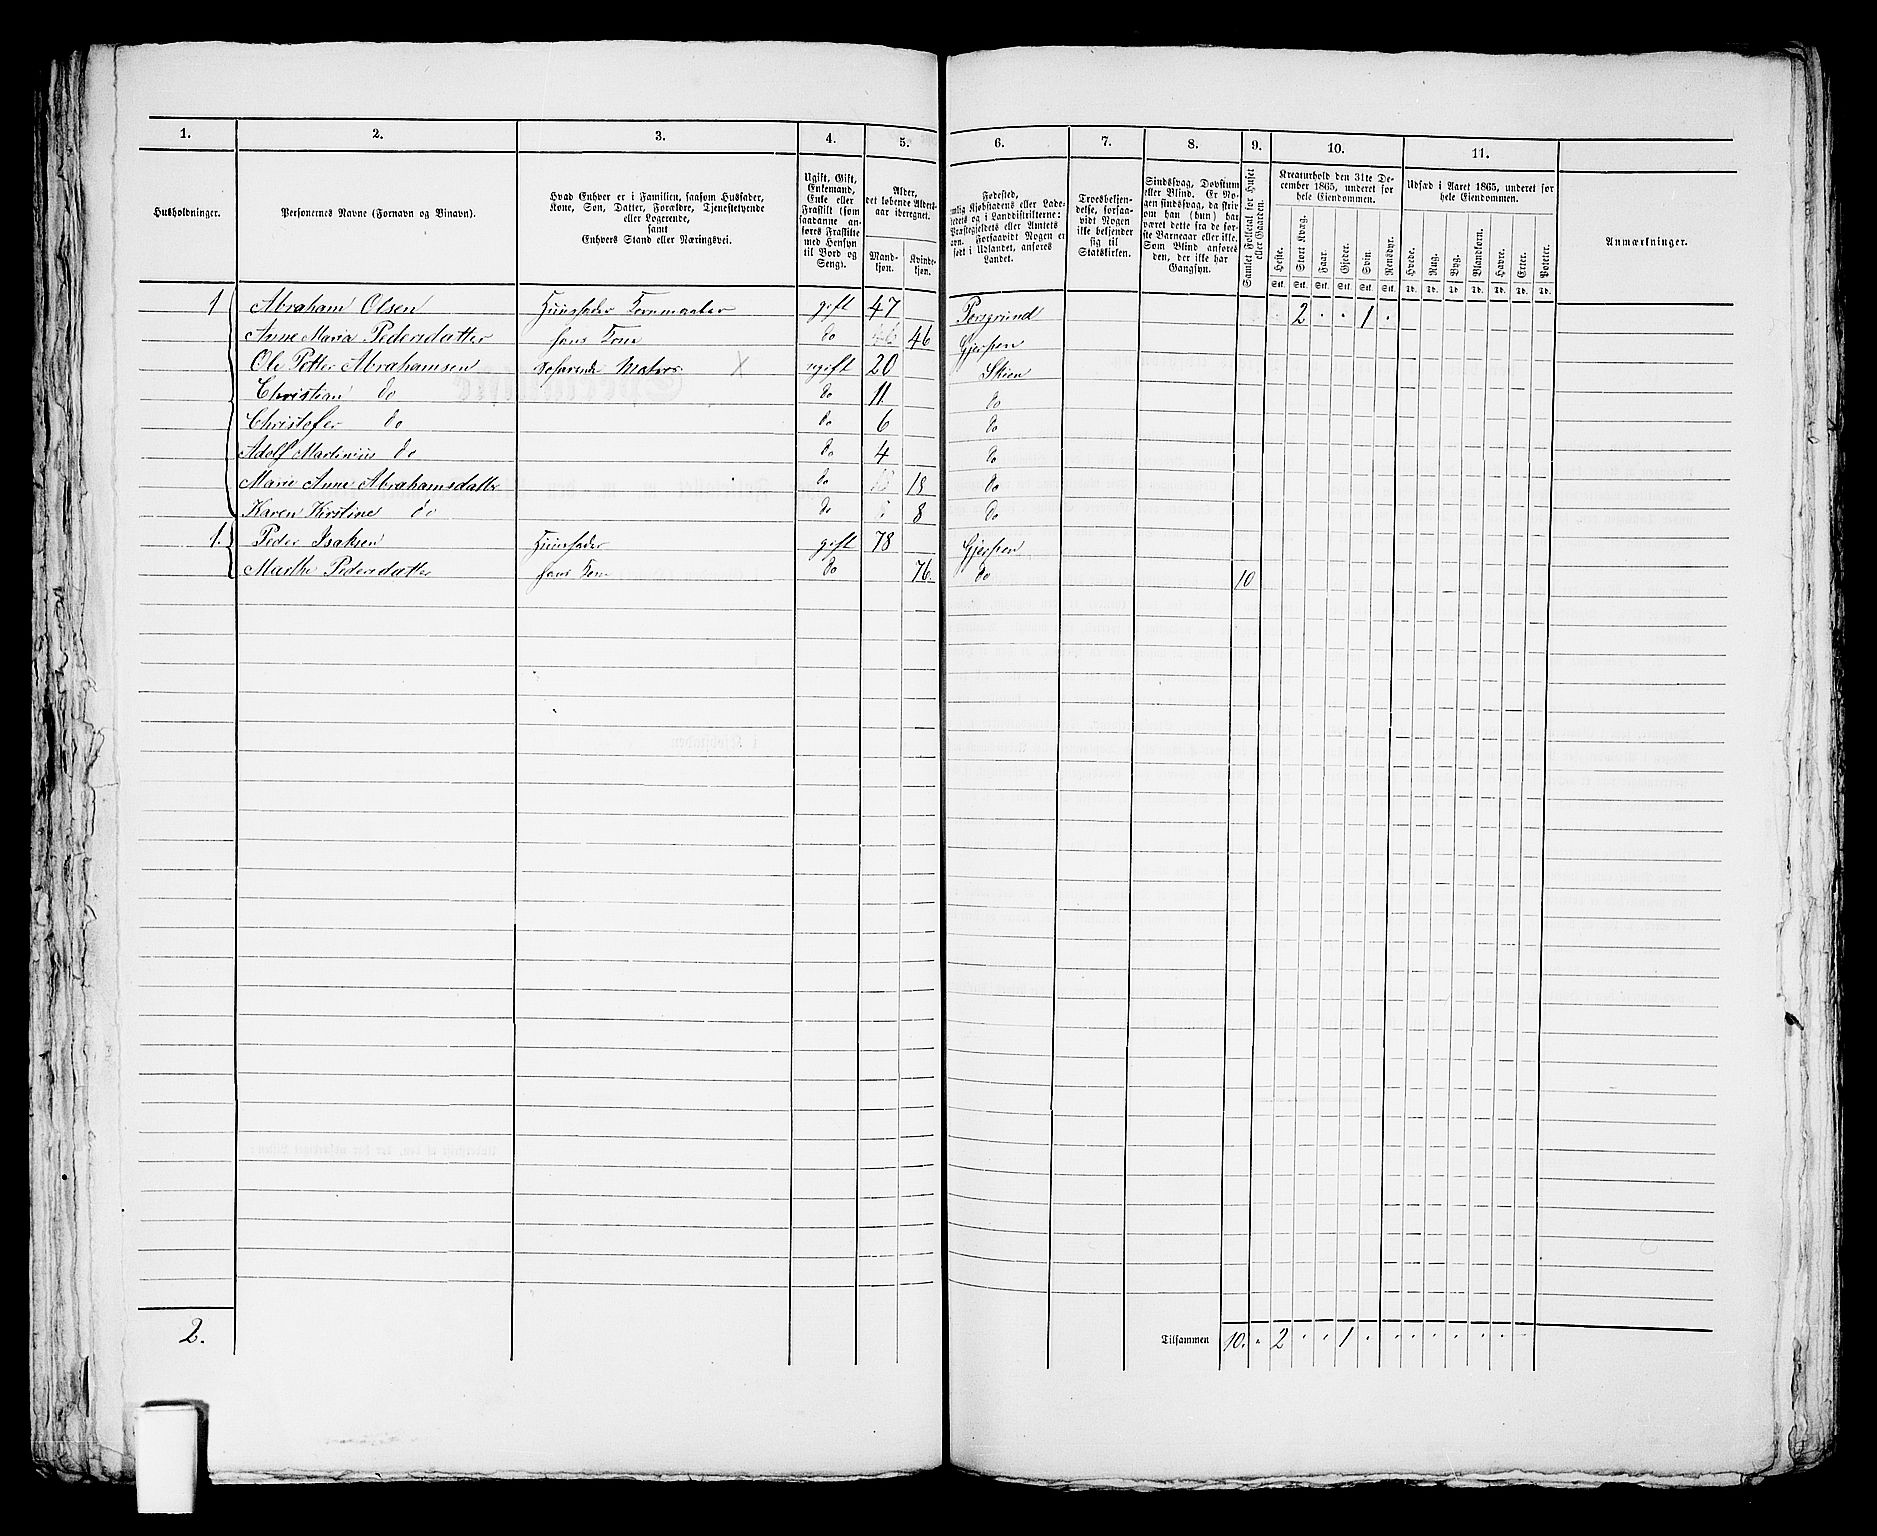 1. 2. 3. 4. 5. 6. 7. 8. 9. 10. 11.
Husholdninger.
Personernes Navne (Fornavn og Binavn).
Hvad Enhver er i Familien, saasom Husfader,
Kone, Søn, Datter, Forældre, Tjenestetyende
eller Logerende,
samt
Enhvers Stand eller Næringsvei.
Ugift, Gift,
Enkemand,
Enke eller
Fraskilt (som
saadanne an-
føres Fraskilte
med Hensyn
til Bord og
Seng).
Alder,
det løbende Alders-
aar iberegnet.
Mand-
kjøn.
Kvinde-
kjøn.
Fødested,
nemlig Kjøbstadens eller Lade-
stedets og i Landdistrikterne:
Præstegjeldets eller Amtets
Navn. Forsaavidt Nogen er
født i Udlandet, anføres
Landet.
Troesbekjen-
delse, forsaa-
vidt Nogen
ikke bekjender
sig til
Statskirken.
Sindssvag, Døvstum
eller Blind. Er No-
gen sindssvag, da skri-
ves om han (hun) har
været dette fra de før-
ste Barneaar eller ikke.
Som Blind anføres
den, der ikke har
Gangsyn.
Samlet Folketal for Huset
eller Gaarden.
Kreaturhold den 31te De-
cember 1865, underet for
hele Eiendommen.
Heste. Stort Kvæg. Faar. Gjeder. Svin. Rensdyr.
Stk. Stk. Stk. Stk. Stk. Stk.
Udsæd i Aaret 1865, underet for
hele Eiendommen.
Hvede. Rug. Byg. Blandkorn. Havre. Erter. Poteter.
Td. Td. Td. Td. Td. Td. Td.
Anmærkninger.
1 Abraham Olsen Huusfader gift 47 Porsgrund 2 . . 1 .
Anne Maria Pedersdatter hans Kone do 46 Gjerpen
Ole Petter Abrahamsen Matros X ugift 20 Skien
Christian do do 11. do
Christofer do do 6 do
Adolf Martinius do do 4 do
Marie Anne Abrahamsdatter do 18 do
Karen Kirstine do do 8 do
1. Peder Isaksen Huusfader gift 78 Gjerpen
Marthe Pedersdatter hans Kone do 76. do 10
2.
Tilsammen 10. . 2 . . 1 . . . . . . . .